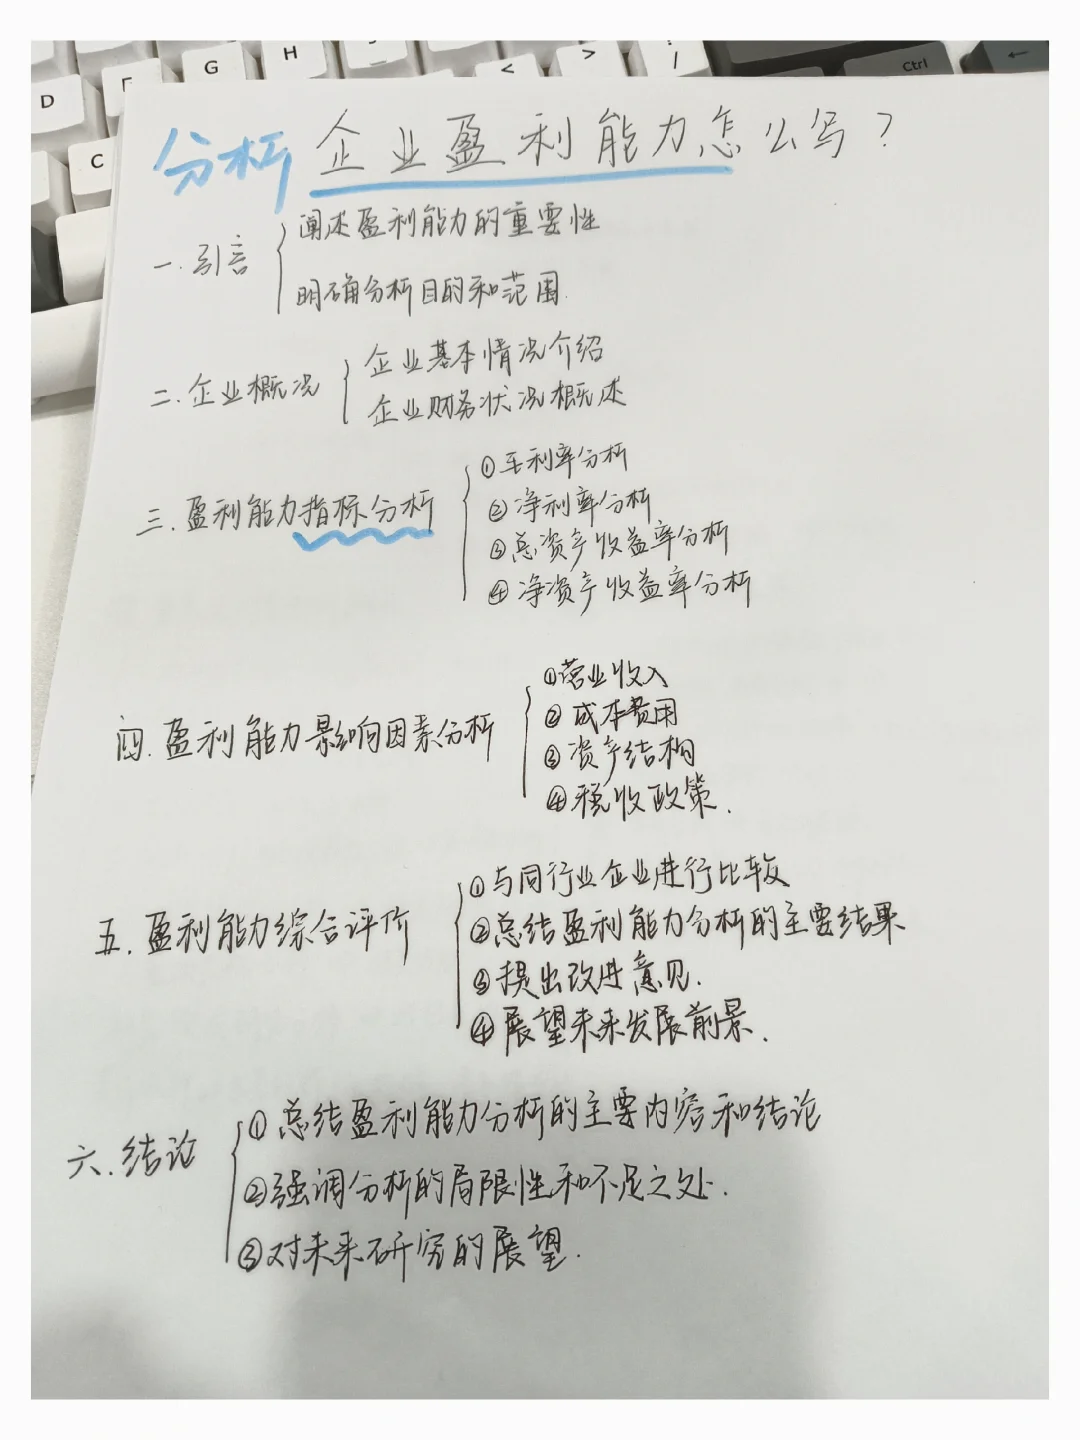 D
F
G
H
J
<
>
/
Ctrl
←
C
分析企业盈利能力怎么写？
一.引言
阐述盈利能力的重要性
明确分析目的和范围.
二.企业概况
企业基本情况介绍
企业财务状况概述
三.盈利能力指标分析
①毛利率分析
②净利率分析
③总资产收益率分析
④净资产收益率分析
四.盈利能力影响因素分析
①营业收入
②成本费用
③资产结构
④税收政策.
五.盈利能力综合评价
①与同行业企业进行比较
②总结盈利能力分析的主要结果
③提出改进意见.
④展望未来发展前景.
六.结论
①总结盈利能力分析的主要内容和结论
②强调分析的局限性和不足之处.
③对未来研究的展望.